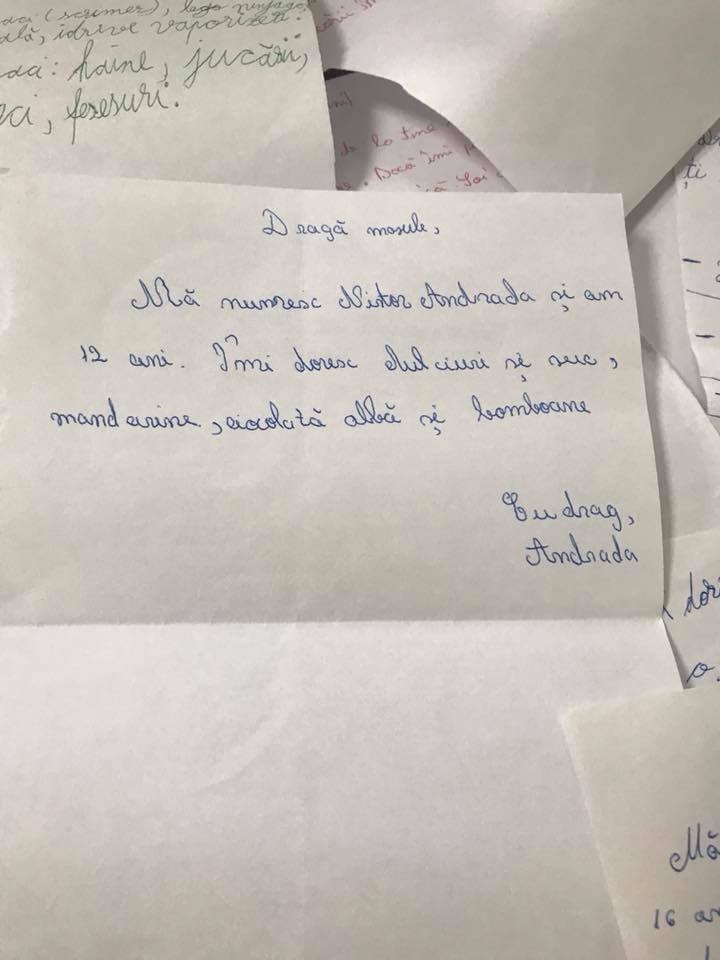 (scrimer), lego ninjago
idrive vaporizea.
haine, jucării,
, fesesuri.
lo tine
. Dacă îmi
Dragă mosule,
Mă numesc Nistor Andrada și am
12 ani. Îmi doresc dulciuri și suc,
mandarine, ciocolată albă și bomboane
Cu drag,
Andrada
ți
dori
o
Mă
16 an